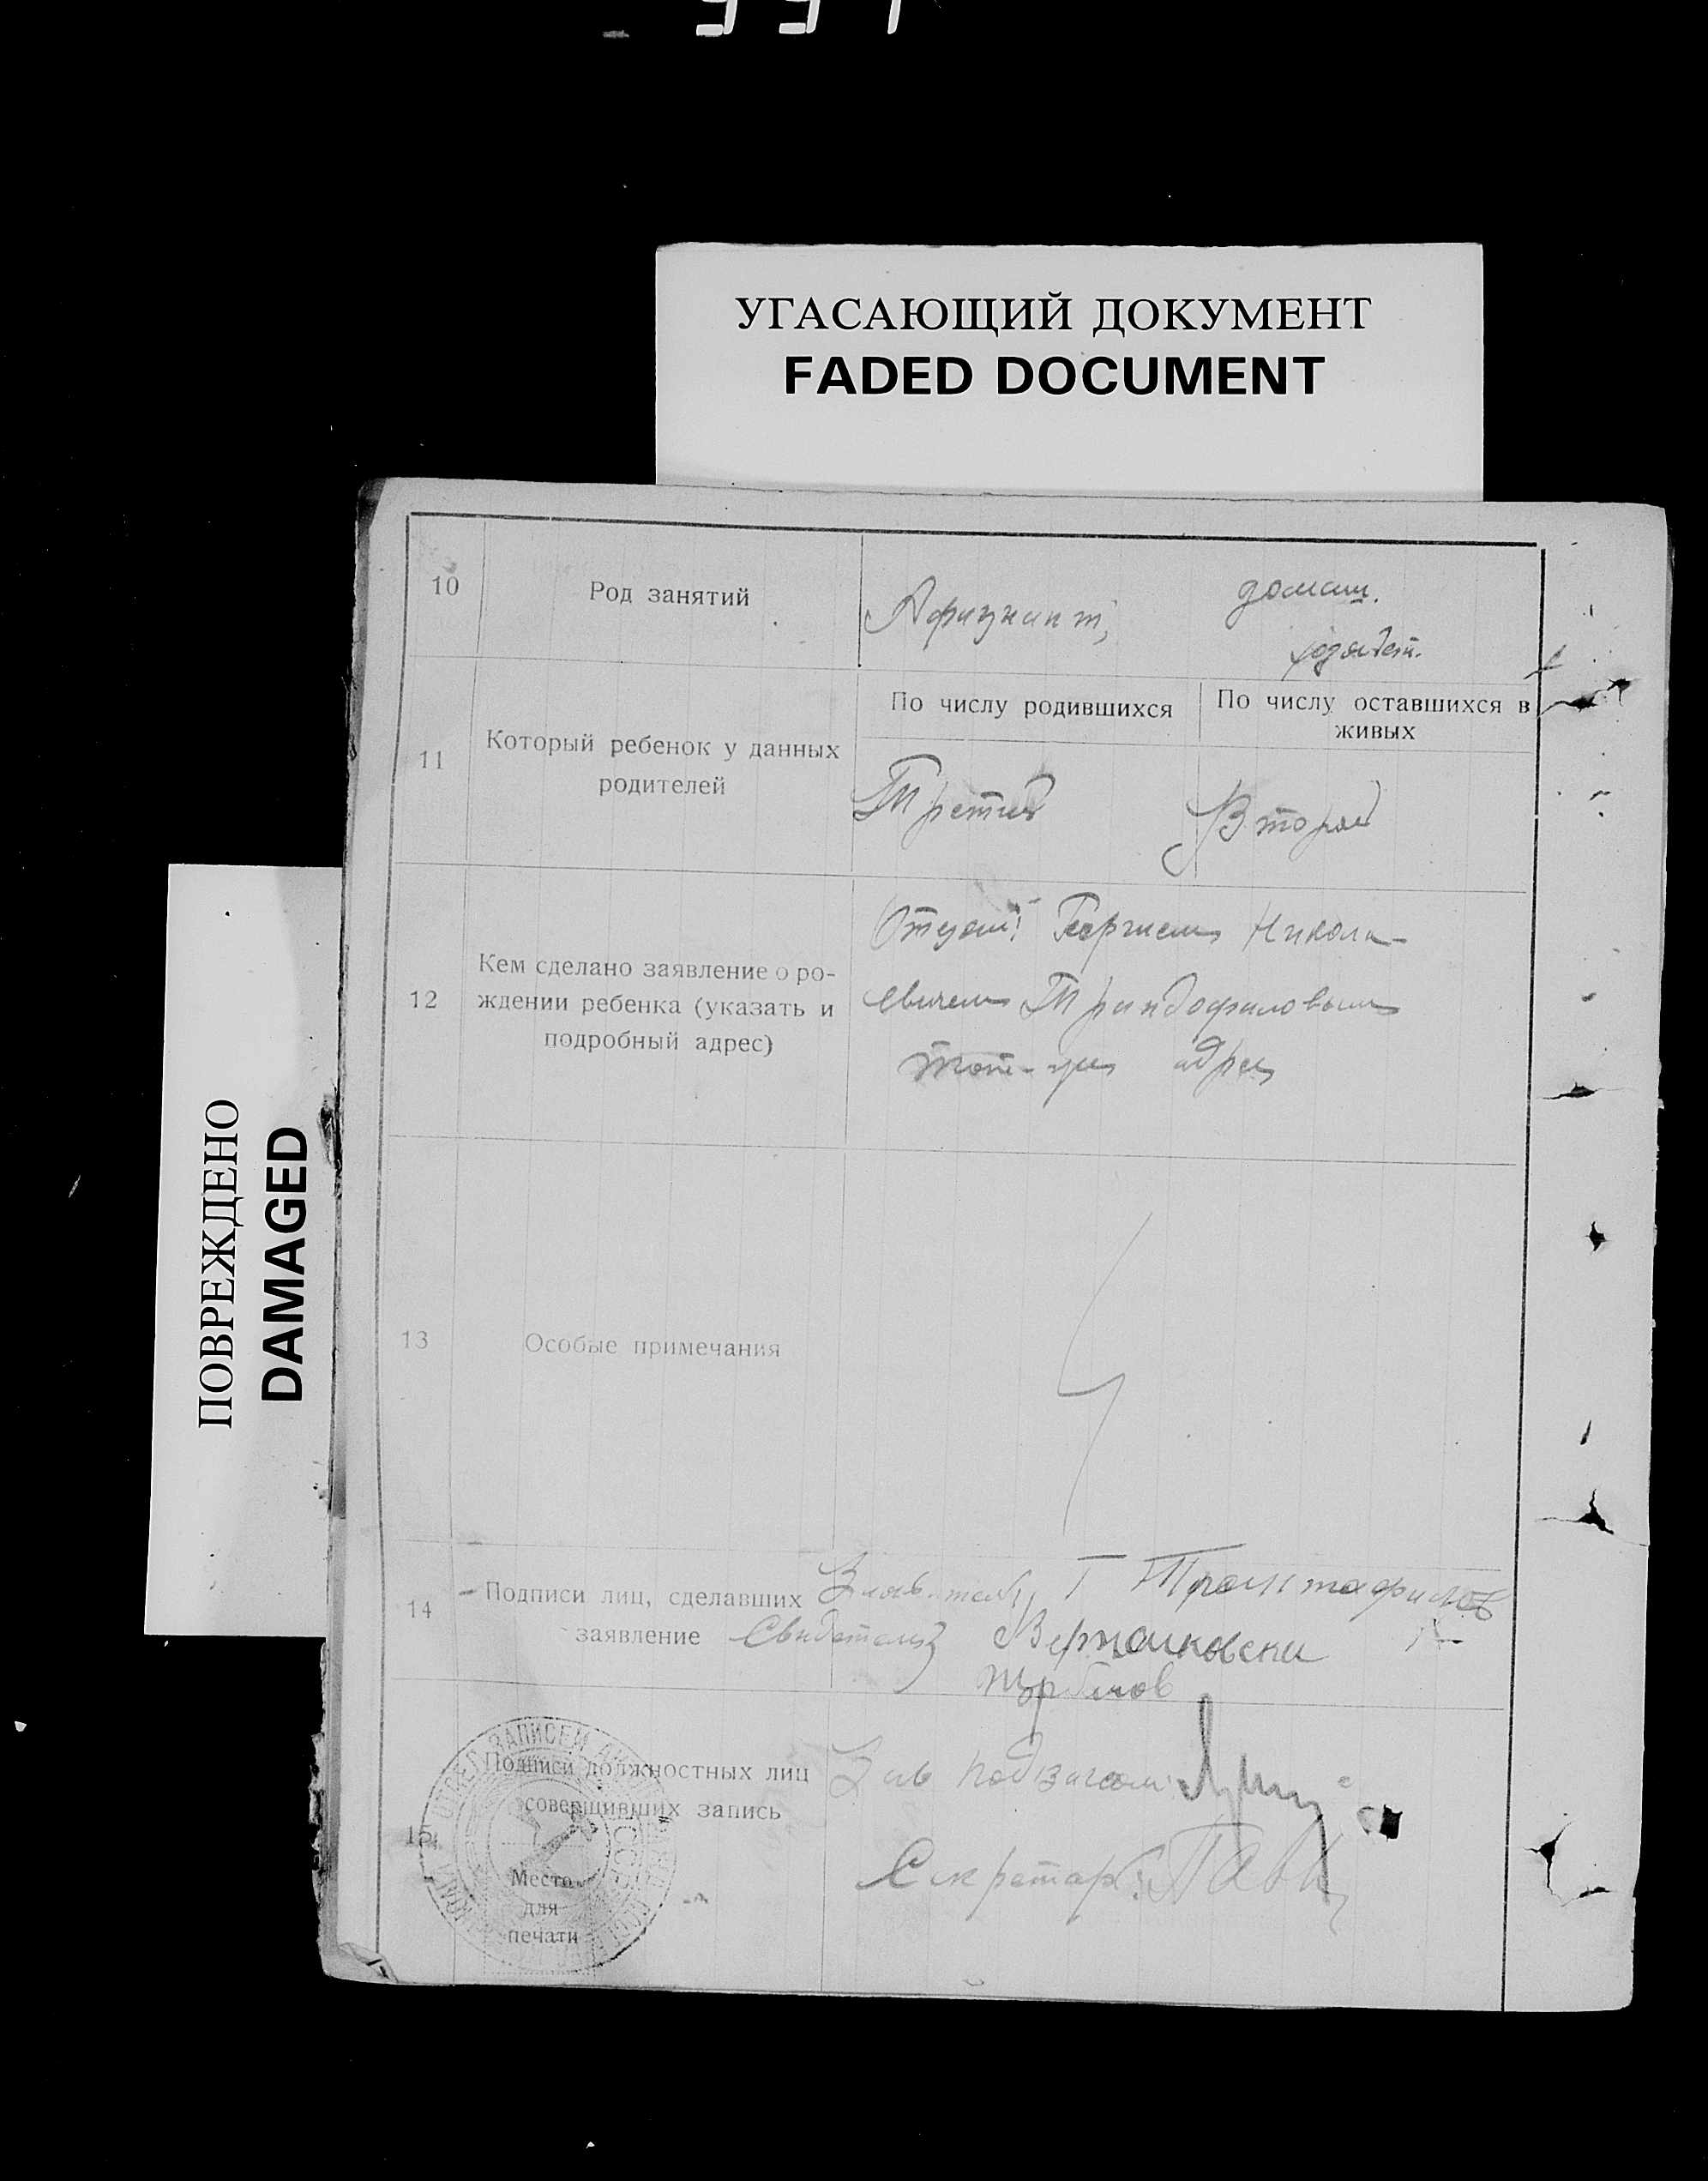 УГАСАЮЩИЙ ДОКУМЕНТ
FADED DOCUMENT
ПОВРЕЖДЕНО
DAMAGED
10
Род занятий
Афицнант,
домаш.
хозяйст.
11
Который ребенок у данных
родителей
По числу родившихся
По числу оставшихся в
живых
Третий
Второй
12
Кем сделано заявление о ро-
ждении ребенка (указать и
подробный адрес)
Отцом: Георгием Никола-
евичем Триндофиловым
тот-же адрес
13
Особые примечания
14
Подписи лиц, сделавших
заявление
Г Трантафилов
Свидетели
15
Подписи должностных лиц
совершивших запись
Место
для
печати
Зав подзагсом:
Секретарь: